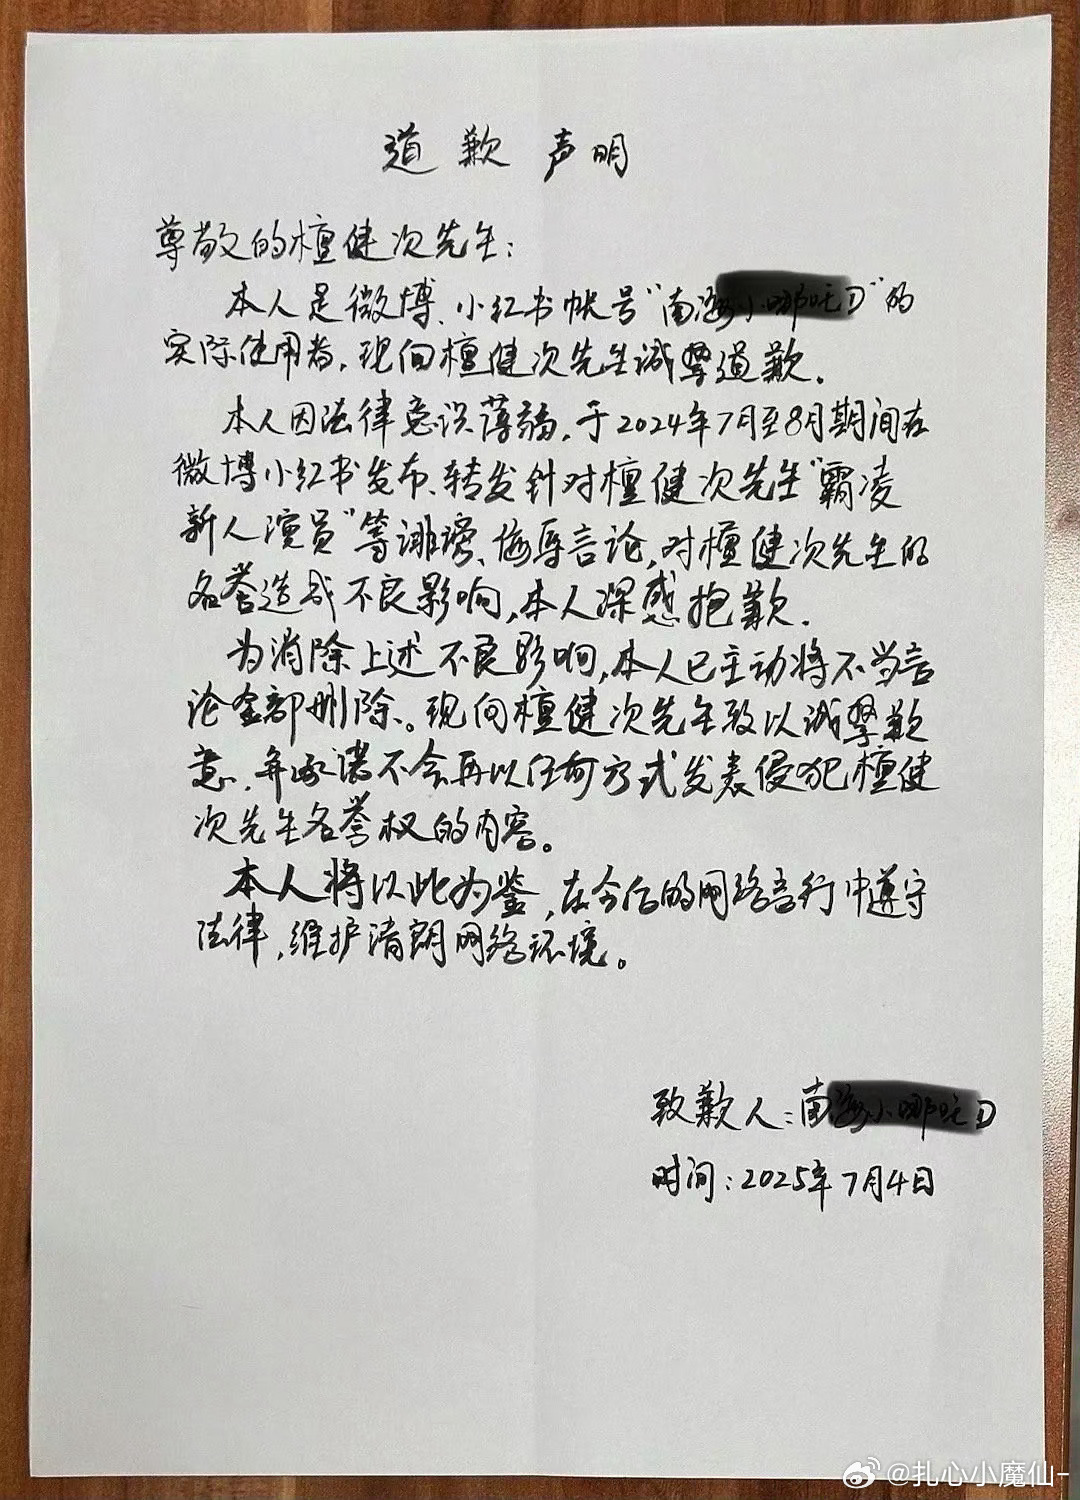 道歉声明
尊敬的檀健次先生：
本人是微博、小红书帐号“南 D”的
实际使用者，现向檀健次先生诚挚道歉．
本人因法律意识薄弱，于2024年7月至8月期间在
微博小红书发布、转发针对檀健次先生“霸凌
新人演员”等诽谤、侮辱言论，对檀健次先生的
名誉造成不良影响，本人深感抱歉．
为消除上述不良影响，本人已主动将不当言
论全部删除。现向檀健次先生致以诚挚歉
意，并承诺不会再以任何方式发表侵犯檀健
次先生名誉权的内容。
本人将以此为鉴，在今后的网络言行中遵守
法律，维护清朗网络环境。
致歉人：南 D
时间：2025年7月4日
@扎心小魔仙-